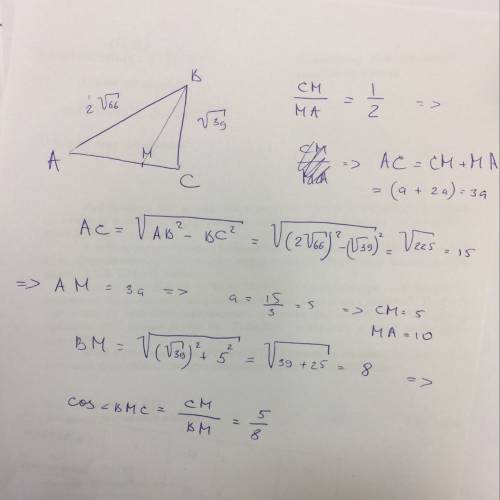 B
2√66
√39
A
M
C
CM/MA = 1/2 =>
=> AC = CM + MA
= (a + 2a) = 3a
AC = √(AB² - BC²) = √((2√66)² - (√39)²) = √225 = 15
=> AM = 3a => a = 15/3 = 5 => CM = 5
MA = 10
BM = √((√39)² + 5²) = √(39 + 25) = 8 =>
cos ∠BMC = CM/BM = 5/8